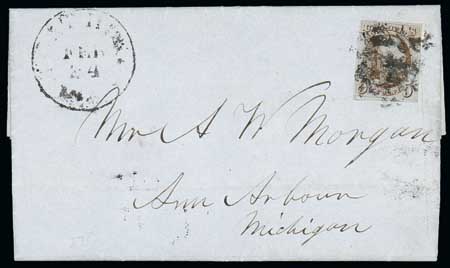 FEB
24
Mr A W Morgan
Ann Arbour
Michigan